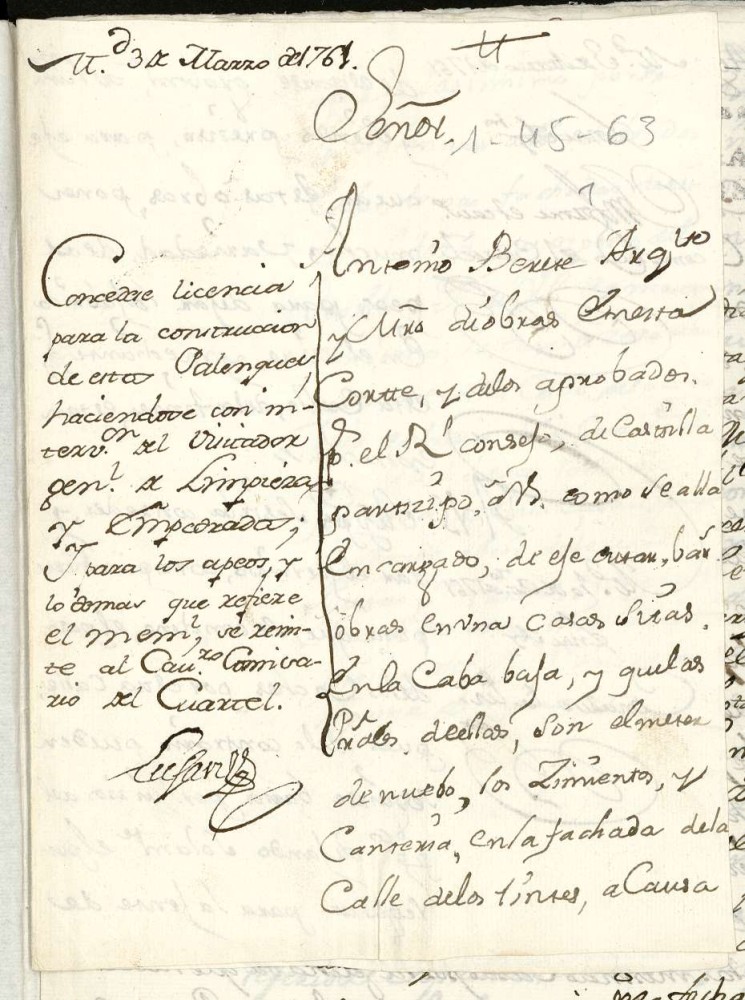 M.d 3 de Marzo de 1761.
Señor.
1-45-63
Concedese licencia
para la construccion
de estos Palenques,
haciendose con in-
terv.on del Visitador
gen.l de Limpieza
y Empedrados;
Y para los apeos, y
lo demas que refiere
el mem.l, se remi-
te al Cav.ro Comisa-
rio del Cuartel.
Antonio Berete Arq.to
y Mro de obras en esta
Cortte, y de los aprobados.
P. el Rl consejo, de Castilla
partizipo, a V. como se alla
Encargado, de ejecutar, bar.s
obras en una Casas sitas.
En la Caba baja, y que las
Prales. de ellas, son el meter
de nuebo, los Zimientos, y
Canteria, en la fachada de la
Calle de los tintes, a Causa